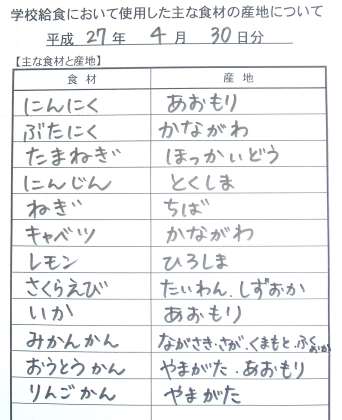 学校給食において使用した主な食材の産地について
平成 27 年 4 月 30 日分
【主な食材と産地】
食材 産地
にんにく あおもり
ぶたにく かながわ
たまねぎ ほっかいどう
にんじん とくしま
ねぎ ちば
キャベツ かながわ
レモン ひろしま
さくらえび たいわん．しずおか
いか あおもり
みかんかん ながさき・さが．くまもと・ふくおか
おうとうかん やまがた．あおもり
りんごかん やまがた